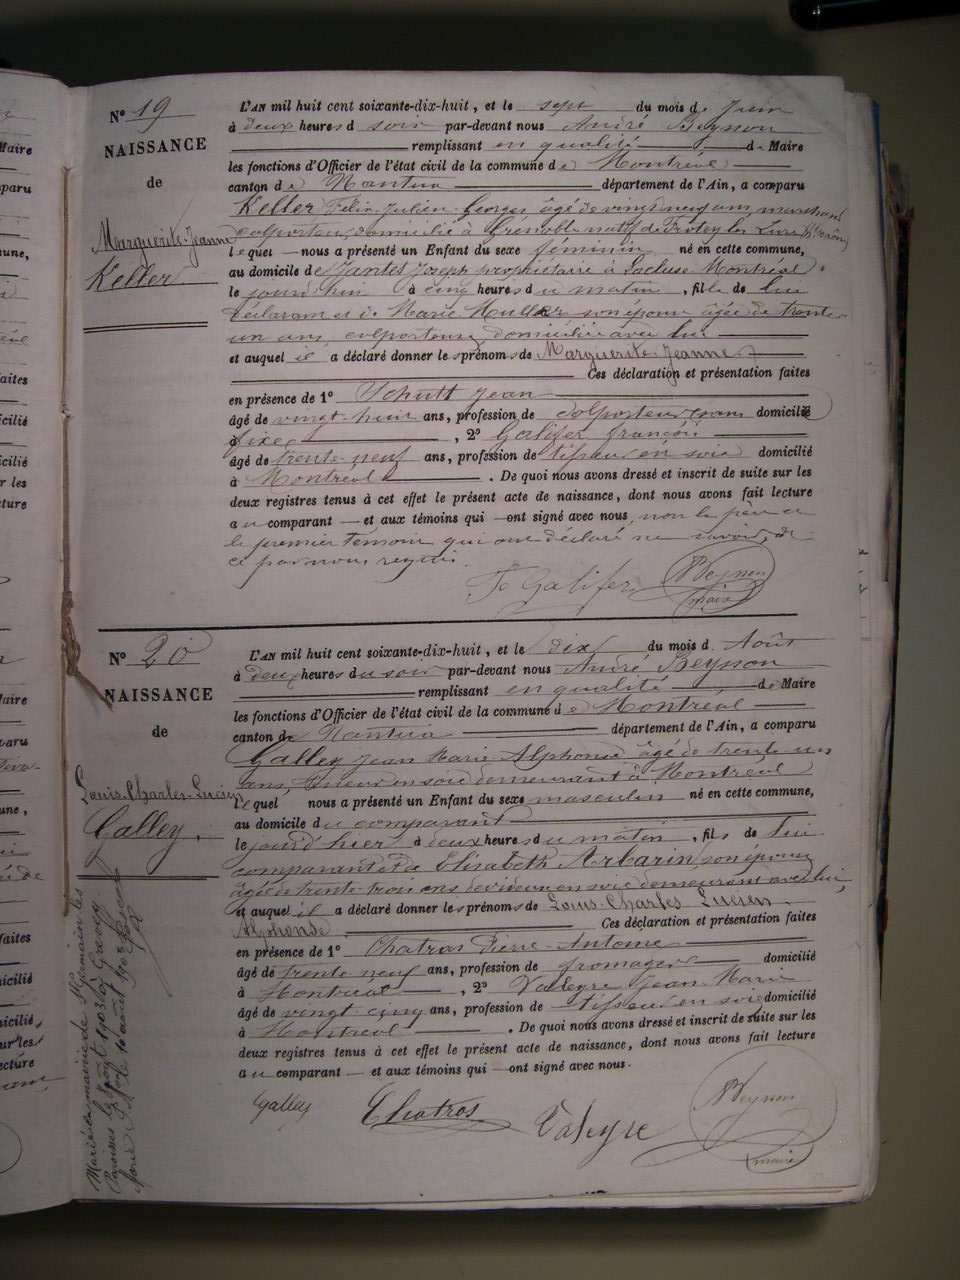 N° 19
NAISSANCE
de
Marguerite-Jeanne
Keller
L'AN mil huit cent soixante-dix-huit, et le sept du mois de Juin
à deux heures d soir par-devant nous André Beysson
remplissant en qualité de Maire
les fonctions d'Officier de l'état civil de la commune de Montréal
canton de Nantua département de l'Ain, a comparu
Keller Félix-Julien-Georges âgé de vingt neuf ans, marchand
colporteur, domicilié à Grenoble natif de Frotey les Lure
lequel nous a présenté un Enfant du sexe féminin né en cette commune,
au domicile de Jantet Joseph propriétaire à Lacluse-Montréal
le jourd'hui à cinq heures du matin, fille de lui
déclarant et de Marie Muller son épouse âgée de trente
un ans, colporteuse domiciliée avec lui
et auquel il a déclaré donner les prénoms de Marguerite-Jeanne
Ces déclaration et présentation faites
en présence de 1° Schutt Jean
âgé de vingt-huit ans, profession de colporteur sans domicile
fixe, 2° Galifer françois
âgé de trente neuf ans, profession de tisseur en soie domicilié
à Montréal. De quoi nous avons dressé et inscrit de suite sur les
deux registres tenus à cet effet le présent acte de naissance, dont nous avons fait lecture
au comparant et aux témoins qui ont signé avec nous, non le père et
le premier témoin qui ont déclaré ne savoir, de
ce par nous requis.
F Galifer
Beysson
maire
N° 20
NAISSANCE
de
Louis-Charles-Lucien
Galley,
L'AN mil huit cent soixante-dix-huit, et le dix du mois d Août
à deux heures du soir par-devant nous André Beysson
remplissant en qualité de Maire
les fonctions d'Officier de l'état civil de la commune de Montréal
canton de Nantua département de l'Ain, a comparu
Galley Jean Marie Alphonse âgé de trente un
ans, tisseur en soie demeurant à Montréal
lequel nous a présenté un Enfant du sexe masculin né en cette commune,
au domicile du comparant
le jour d'hier à deux heures du matin, fils de lui
comparant et de Elisabeth Arbarin, son épouse
âgée de trente-trois ans dévideuse en soie demeurant avec lui,
et auquel il a déclaré donner les prénoms de Louis-Charles Lucien
Alphonse Ces déclaration et présentation faites
en présence de 1° Chatras Pierre-Antoine
âgé de trente neuf ans, profession de fromager domicilié
à Montréal, 2° Valeyre Jean Marie
âgé de vingt cinq ans, profession de tisseur en soie domicilié
à Montréal. De quoi nous avons dressé et inscrit de suite sur les
deux registres tenus à cet effet le présent acte de naissance, dont nous avons fait lecture
au comparant et aux témoins qui ont signé avec nous.
Galley
Chatras
Valeyre
Beysson
maire
Marié en mairie de St Germain les
Paroisses le 8 août 1903 à
le 10 août 1903